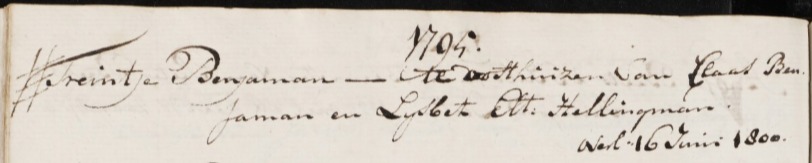 1795.
Treintje Benjaman — te Oosthuizen van Claas Ben.
jaman en Lysbet Ett: Hellingman.
Overl. 16 Juni 1800.